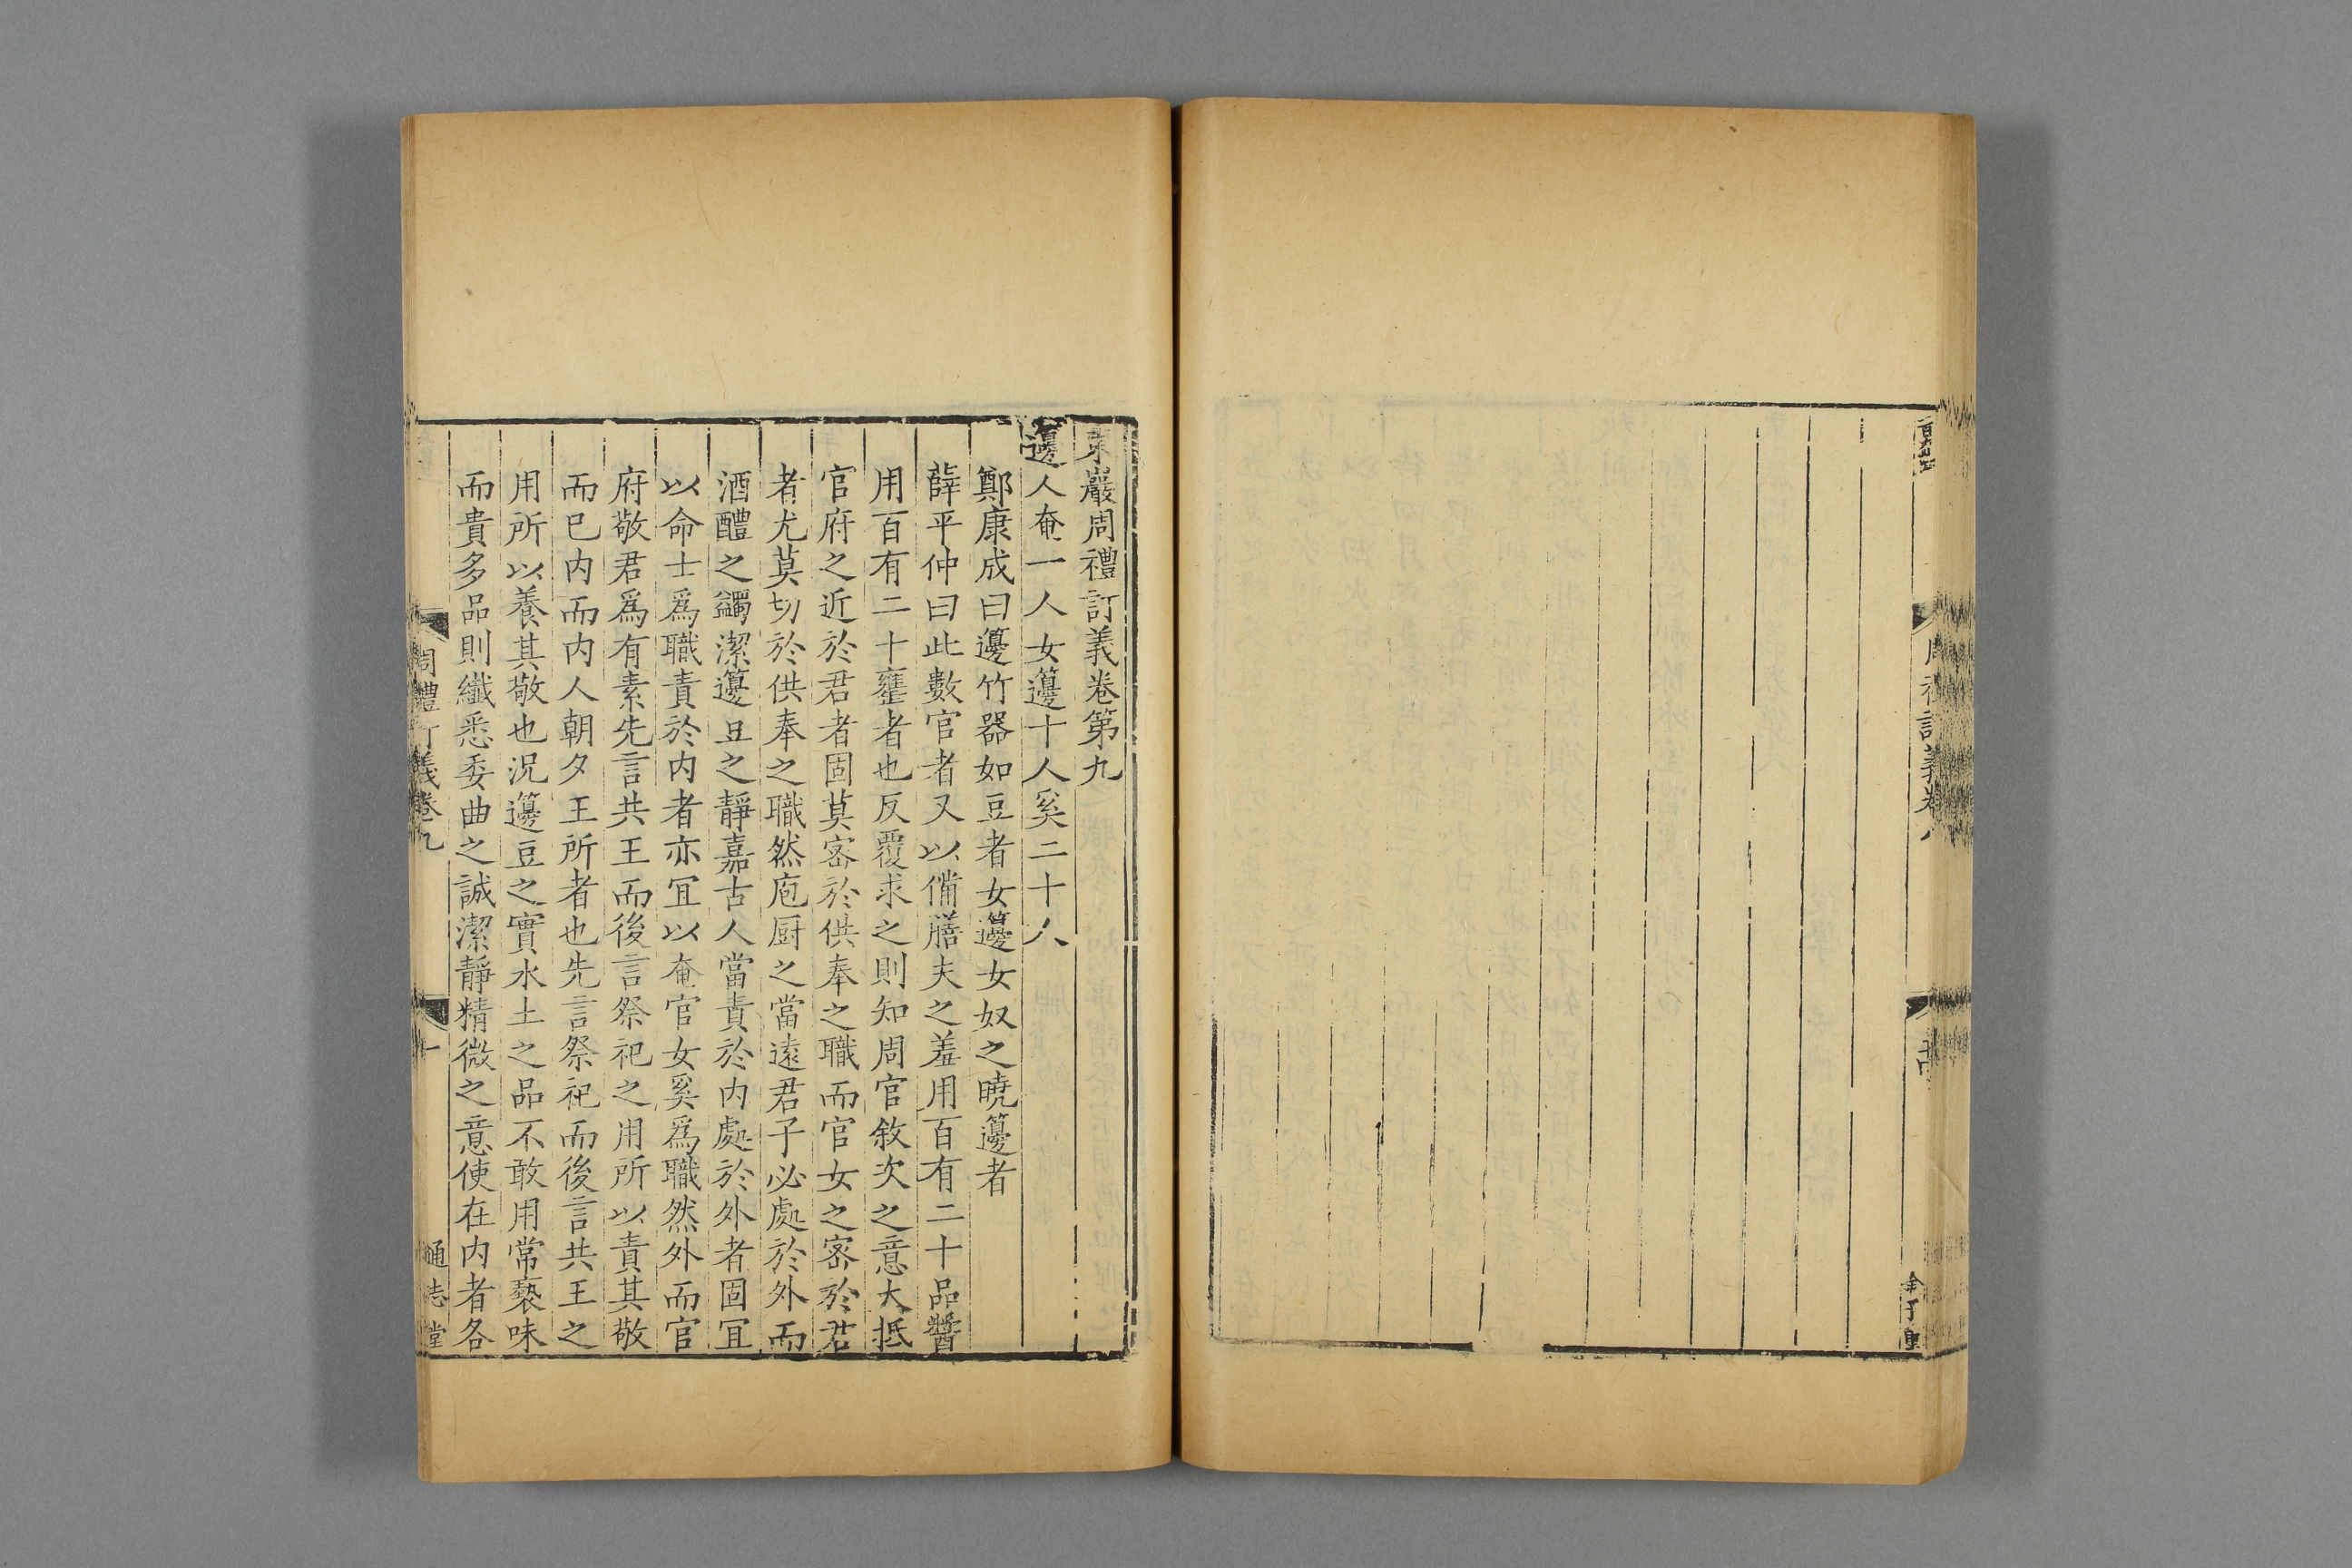 周禮訂義卷八
東巖周禮訂義卷第九
籩人奄一人女籩十人奚二十人
鄭康成曰籩竹器如豆者女籩女奴之曉籩者
薛平仲曰此數官者又以備膳夫之羞用百有二十品醬
用百有二十罋者也反覆求之則知周官敘次之意大抵
官府之近於君者固莫宻於供奉之職而官女之宻於君
者尤莫切於供奉之職然庖厨之當遠君子必處於外而
酒醴之蠲潔籩豆之靜嘉古人當責於内處於外者固冝
以命士爲職責於内者亦冝以奄官女奚爲職然外而官
府敬君爲有素先言共王而後言祭祀之用所以責其敬
而已内而内人朝夕王所者也先言祭祀而後言共王之
用所以養其敬也況籩豆之實水土之品不敢用常䙝味
而貴多品則纖悉委曲之誠潔靜精微之意使在内者各
周禮訂義卷九
一
通志堂